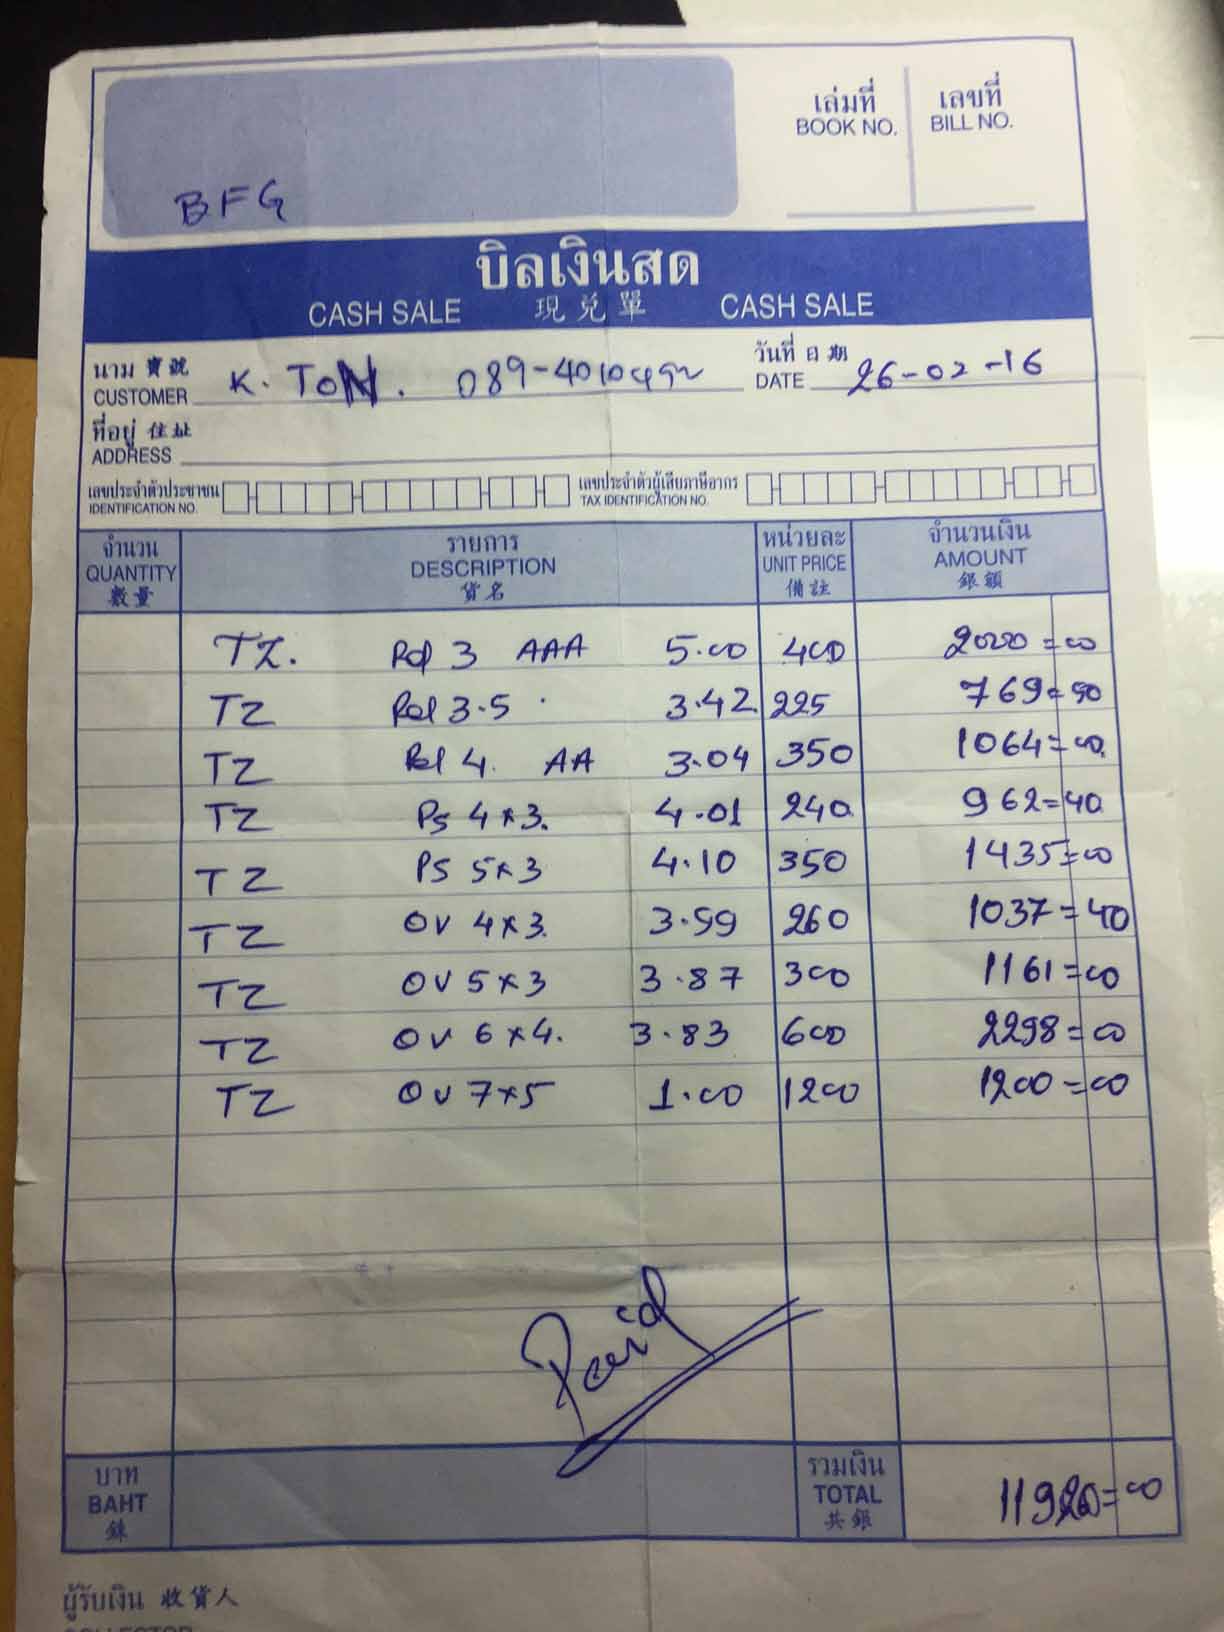 เล่มที่ เลขที่
BOOK NO. BILL NO.
BFG
บิลเงินสด
CASH SALE 現兌單 CASH SALE
นาม 寶號 วันที่ 日期
CUSTOMER K. TON. DATE 26-02-16
ที่อยู่ 住址
ADDRESS
เลขประจำตัวประชาชน เลขประจำตัวผู้เสียภาษีอากร
IDENTIFICATION NO. TAX IDENTIFICATION NO.
จำนวน รายการ หน่วยละ จำนวนเงิน
QUANTITY DESCRIPTION UNIT PRICE AMOUNT
數量 貨名 備註 銀額
TZ. 3 AAA 5.00 400 2000=00
TZ 3.5 3.42 225 769=50
TZ 4. AA 3.04 350 1064=00
TZ PS 4x3. 4.01 240 962=40
TZ PS 5x3 4.10 350 1435=00
TZ OV 4x3. 3.99 260 1037=40
TZ OV 5x3 3.87 300 1161=00
TZ OV 6x4. 3.83 600 2298=00
TZ OV 7x5 1.00 1200 1200=00
Paid
บาท รวมเงิน
BAHT TOTAL 11920=00
銖 共銀
ผู้รับเงิน 收貨人
COLLECTOR